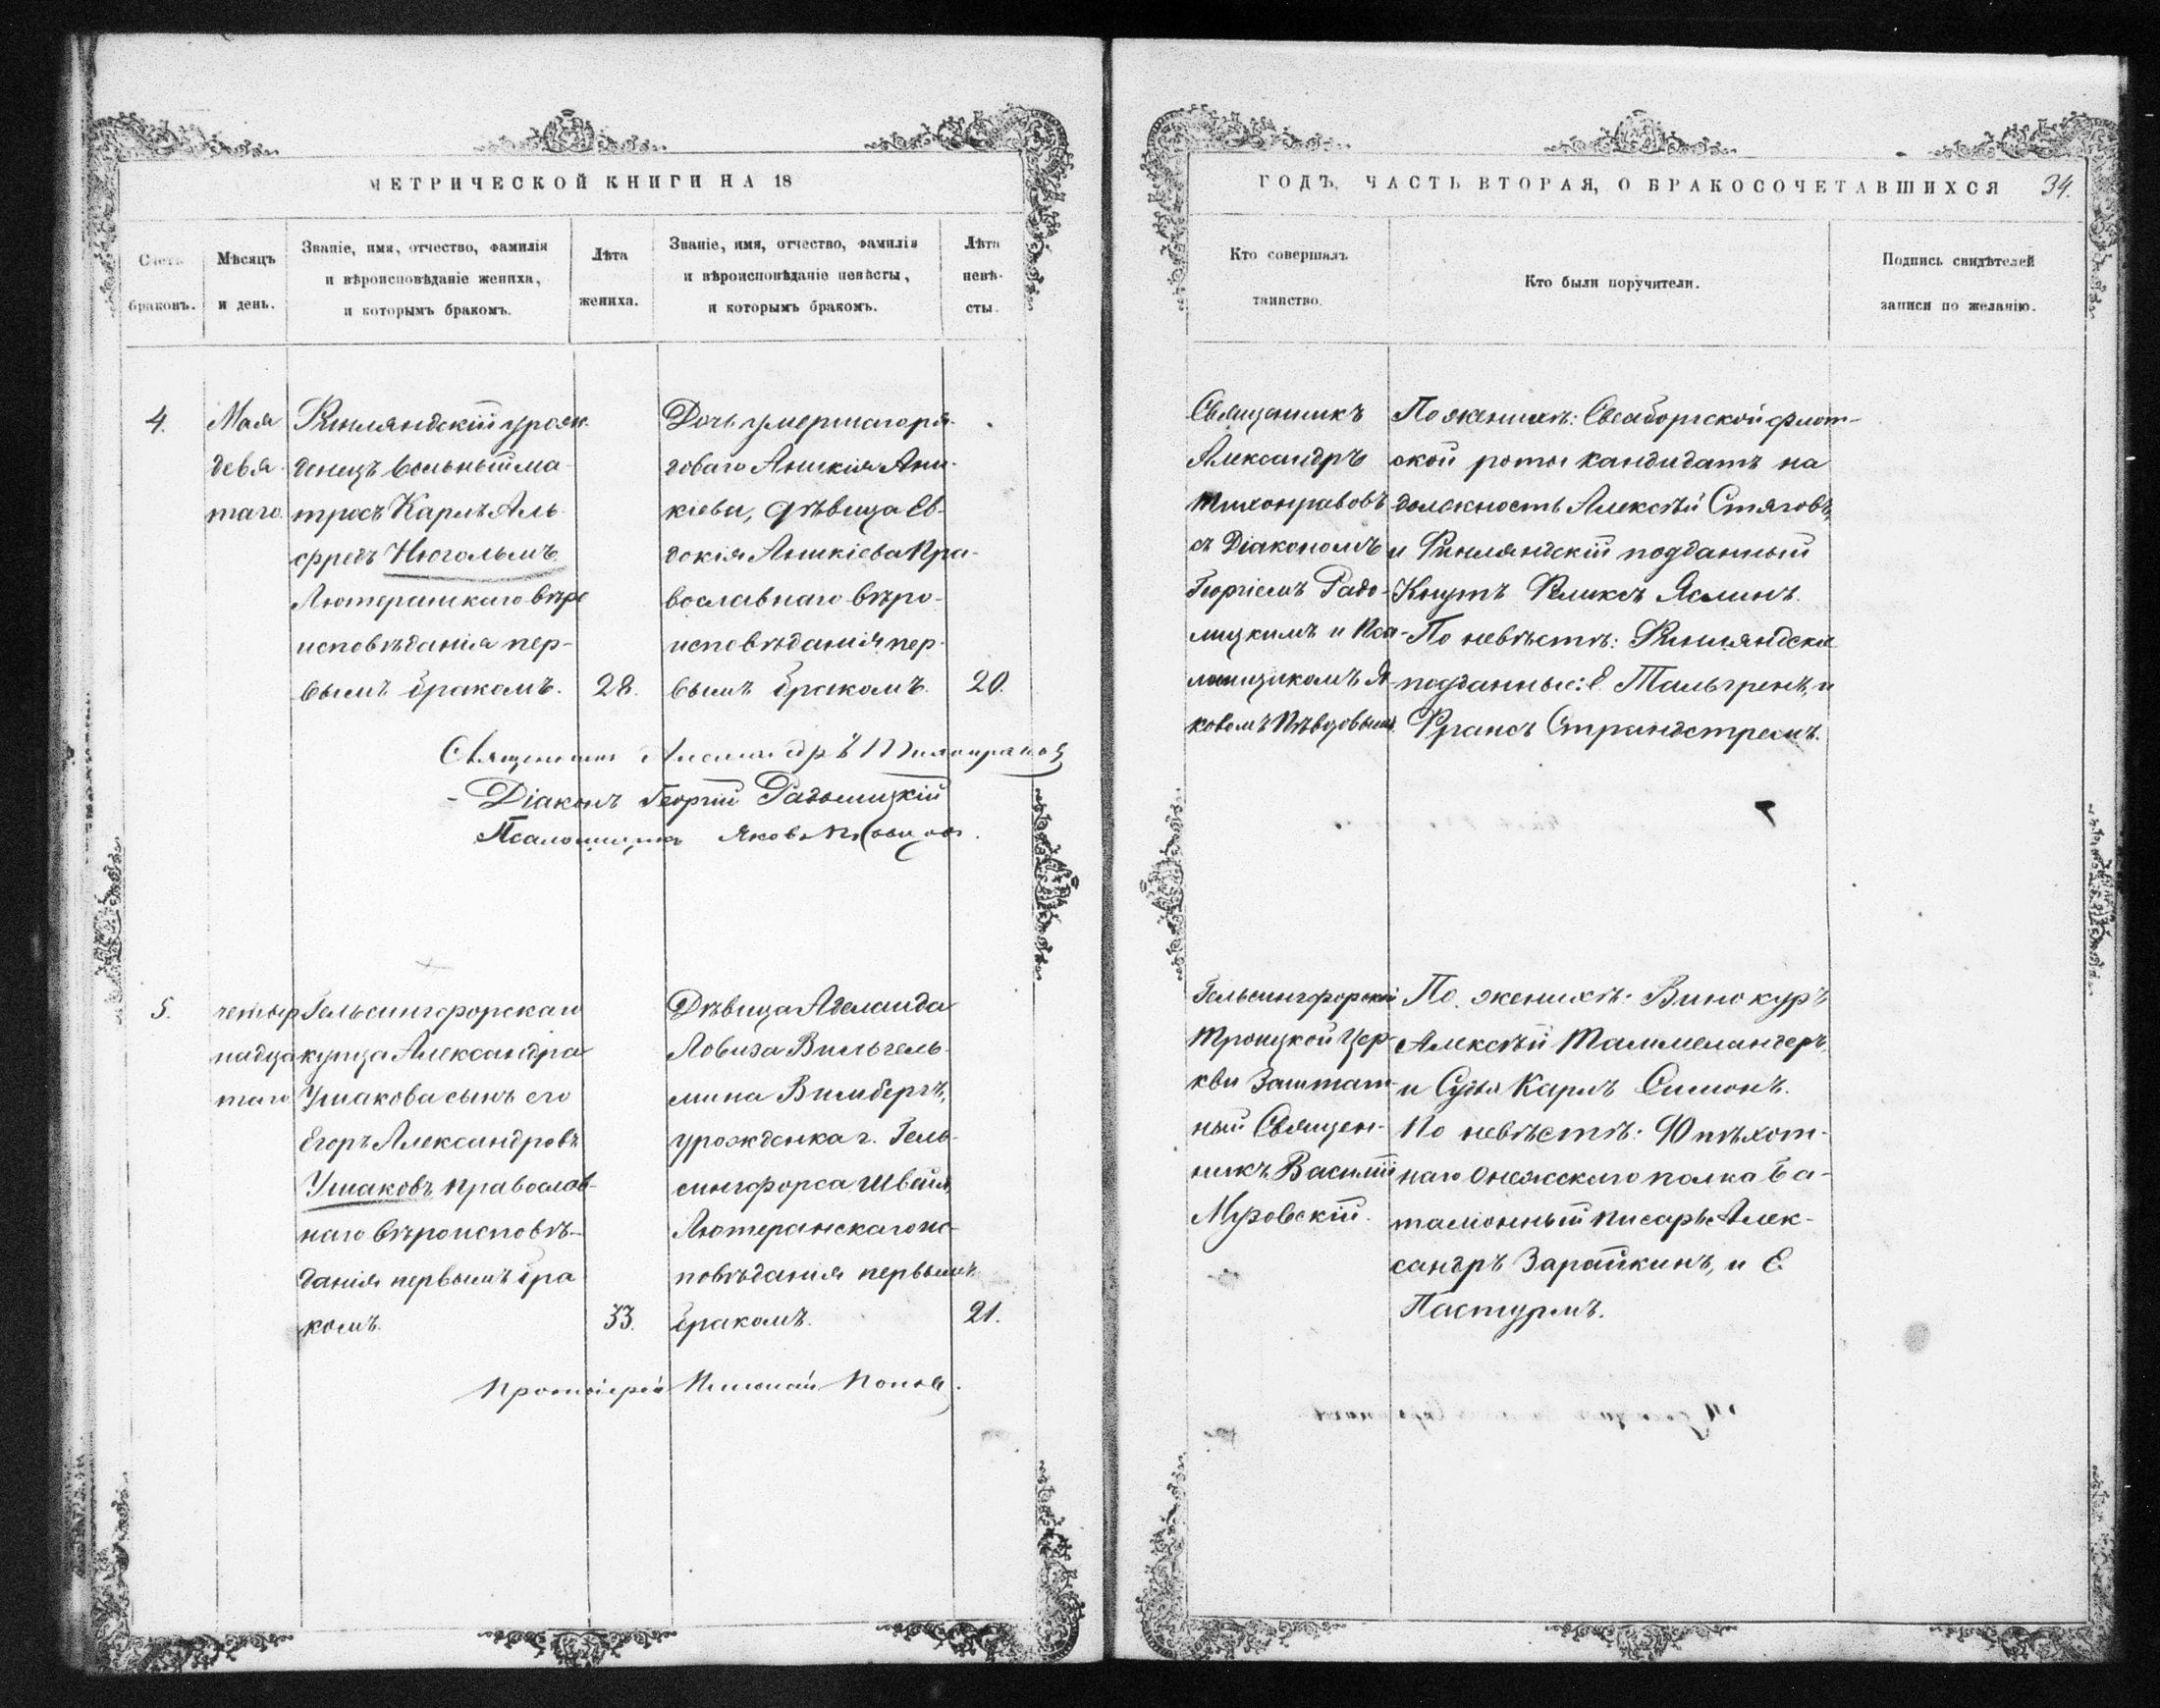 МЕТРИЧЕСКОЙ КНИГИ НА 18
Счетъ
браковъ.
Мѣсяцъ
и день.
Званіе, имя, отчество, фамилія
и вѣроисповѣданіе жениха,
и которымъ бракомъ.
Лѣта
жениха.
Званіе, имя, отчество, фамилія
и вѣроисповѣданіе невѣсты,
и которымъ бракомъ.
Лѣта
невѣ-
сты.
4.
Мая
девя-
таго.
Финляндскій урож-
денецъ вольный ма-
тросъ Карлъ Аль-
фредъ Нюгольмъ
Лютеранскаго вѣро
исповѣданія пер-
вымъ бракомъ.
28.
Дочь умершаго ря-
доваго Аникія Ани-
кіева, дѣвица Ев-
докія Аникіева Пра-
вославнаго вѣро-
исповѣданія пер-
вымъ бракомъ.
20.
Священникъ Александръ Тихонравовъ
Діаконъ Георгій Радомицкій
Псаломщикъ Яковъ Пѣвцовъ.
5.
четыр
надца
таго
Гельсингфорскаго
купца Александра
Ушакова сынъ его
Егоръ Александровъ
Ушаковъ православ-
наго вѣроисповѣ-
данія первымъ бра
комъ.
33.
Дѣвица Аделаида
Ловиза Вильгель-
мина Вимбергъ,
урожденка г. Гель-
сингфорса швея,
Лютеранскаго ис-
повѣданія первымъ
бракомъ.
21.
Протоіерей Николай Поповъ.
ГОДЪ, ЧАСТЬ ВТОРАЯ, О БРАКОСОЧЕТАВШИХСЯ
34.
Кто совершалъ
таинство.
Кто были поручители.
Подпись свидѣтелей
записи по желанію.
Священникъ
Александръ
Тихонравовъ
съ Діакономъ
Георгіемъ Радо-
мицкимъ и Пса-
ломщикомъ Я-
ковомъ Пѣвцовымъ.
По женихѣ: Свеаборгской флот-
ской роты кандидатъ на
должность Алексѣй Стяговъ,
и Финляндскій подданный
Кнутъ Феликсъ Яслинъ.
По невѣстѣ: Финляндскіе
подданные: Е. Тальгренъ, и
Францъ Страндстремъ.
Гельсингфорской
Троицкой Цер-
кви Заштат-
ный Священ-
никъ Василій
Музовскій.
По женихѣ: Винокуръ
Алексѣй Таммеландеръ,
и Судья Карлъ Симонъ.
По невѣстѣ: 90 пѣхот-
наго Онежскаго полка ба-
таліонный писарь Алек-
сандръ Зарайкинъ, и Е.